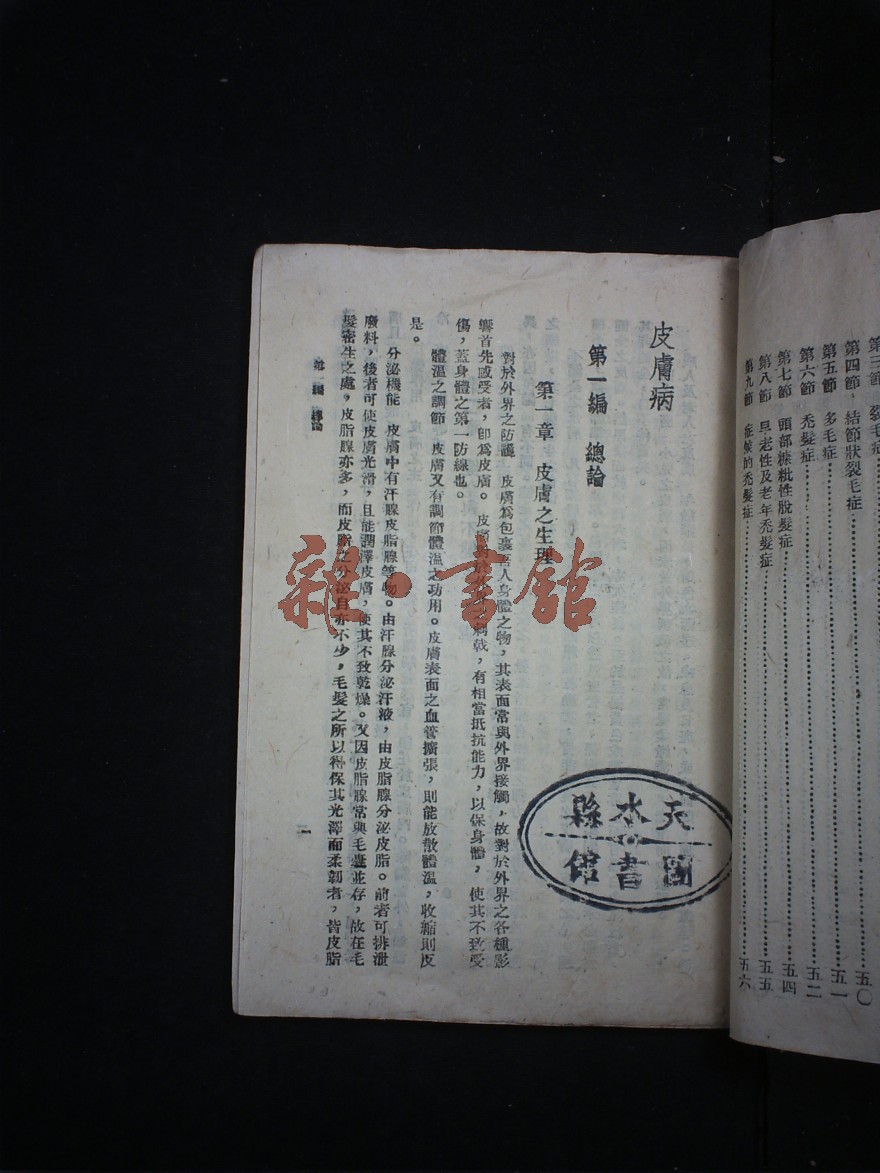 第三節 裂毛症
第四節 結節狀裂毛症……五〇
第五節 多毛症……五一
第六節 禿髮症……五二
第七節 頭部糠粃性脫髮症……五四
第八節 早老性及老年禿髮症……五五
第九節 症候的禿髮症……五六
皮膚病
第一編 總論
第一章 皮膚之生理
對於外界之防護 皮膚爲包裹吾人身體之物，其表面常與外界接觸，故對於外界之各種影
響首先感受者，卽爲皮膚。皮膚對於外界之刺戟，有相當抵抗能力，以保身體，使其不致受
傷，蓋身體之第一防線也。
體溫之調節 皮膚又有調節體溫之功用。皮膚表面之血管擴張，則能放散體溫，收縮則反
是。
分泌機能 皮膚中有汗腺皮脂腺等物。由汗腺分泌汗液，由皮脂腺分泌皮脂。前者可排泄
廢料，後者可使皮膚光滑，且能潤澤皮膚，使其不致乾燥。又因皮脂腺常與毛囊並存，故在毛
髮密生之處，皮脂腺亦多，而皮脂之分泌自亦不少，毛髮之所以得保其光澤而柔韌者，皆皮脂
第一編 總論
一
天水縣
圖書館
雜·書館